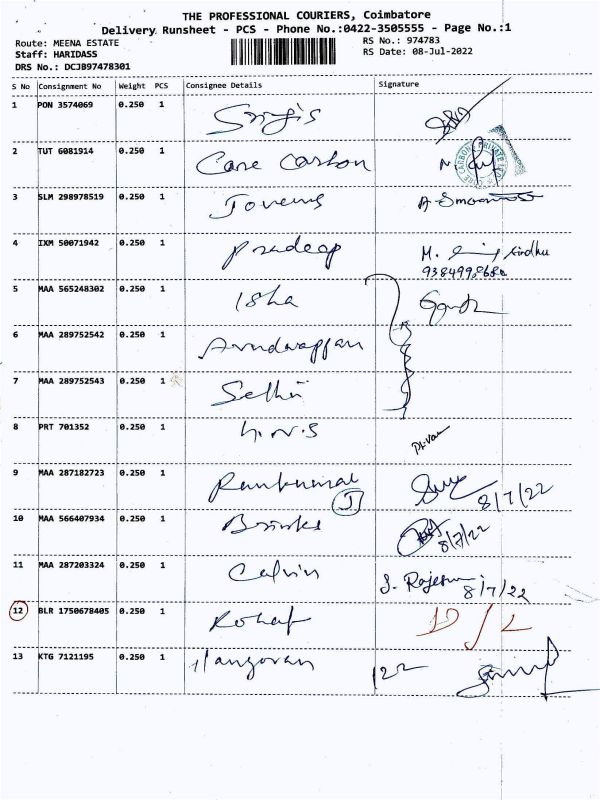 THE PROFESSIONAL COURIERS, Coimbatore
Delivery Runsheet - PCS - Phone No.:0422-3505555 - Page No.:1
Route: MEENA ESTATE RS No.: 974783
Staff: HARIDASS RS Date: 08-Jul-2022
DRS No.: DCJB97478301
S No Consignment No Weight PCS Consignee Details Signature
1 PON 3574069 0.250 1
2 TUT 6081914 0.250 1 Care Carbon
3 SLM 298978519 0.250 1
4 IXM 50071942 0.250 1 Pradeep M. Sindhu
5 MAA 565248302 0.250 1 Isha
6 MAA 289752542 0.250 1
7 MAA 289752543 0.250 1 Sethu
8 PRT 701352 0.250 1
9 MAA 287182723 0.250 1 Ramkumar 8/7/22
J
10 MAA 566407934 0.250 1 Brinks 8/7/22
11 MAA 287203324 0.250 1 Calvin S. Rajesh 8/7/22
12 BLR 1750678405 0.250 1 D/L
13 KTG 7121195 0.250 1 Ilangovan 122